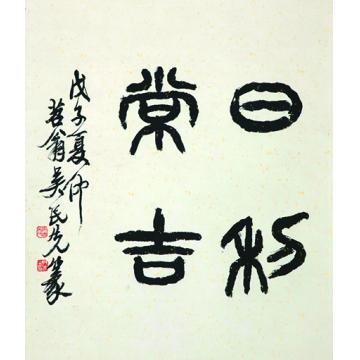 日利
常吉
戊子夏仲
苔翁吴民先篆